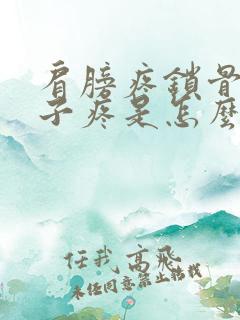 肩膀疼鎖骨
子疼是怎麼
任我高飛
未经同意禁止转载